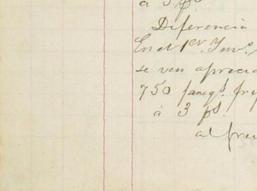 á 3 p
Diferencia
En el 1er. Inv.
se ven aprecia
750 fanqs. fri
á 3 ps.
al pre